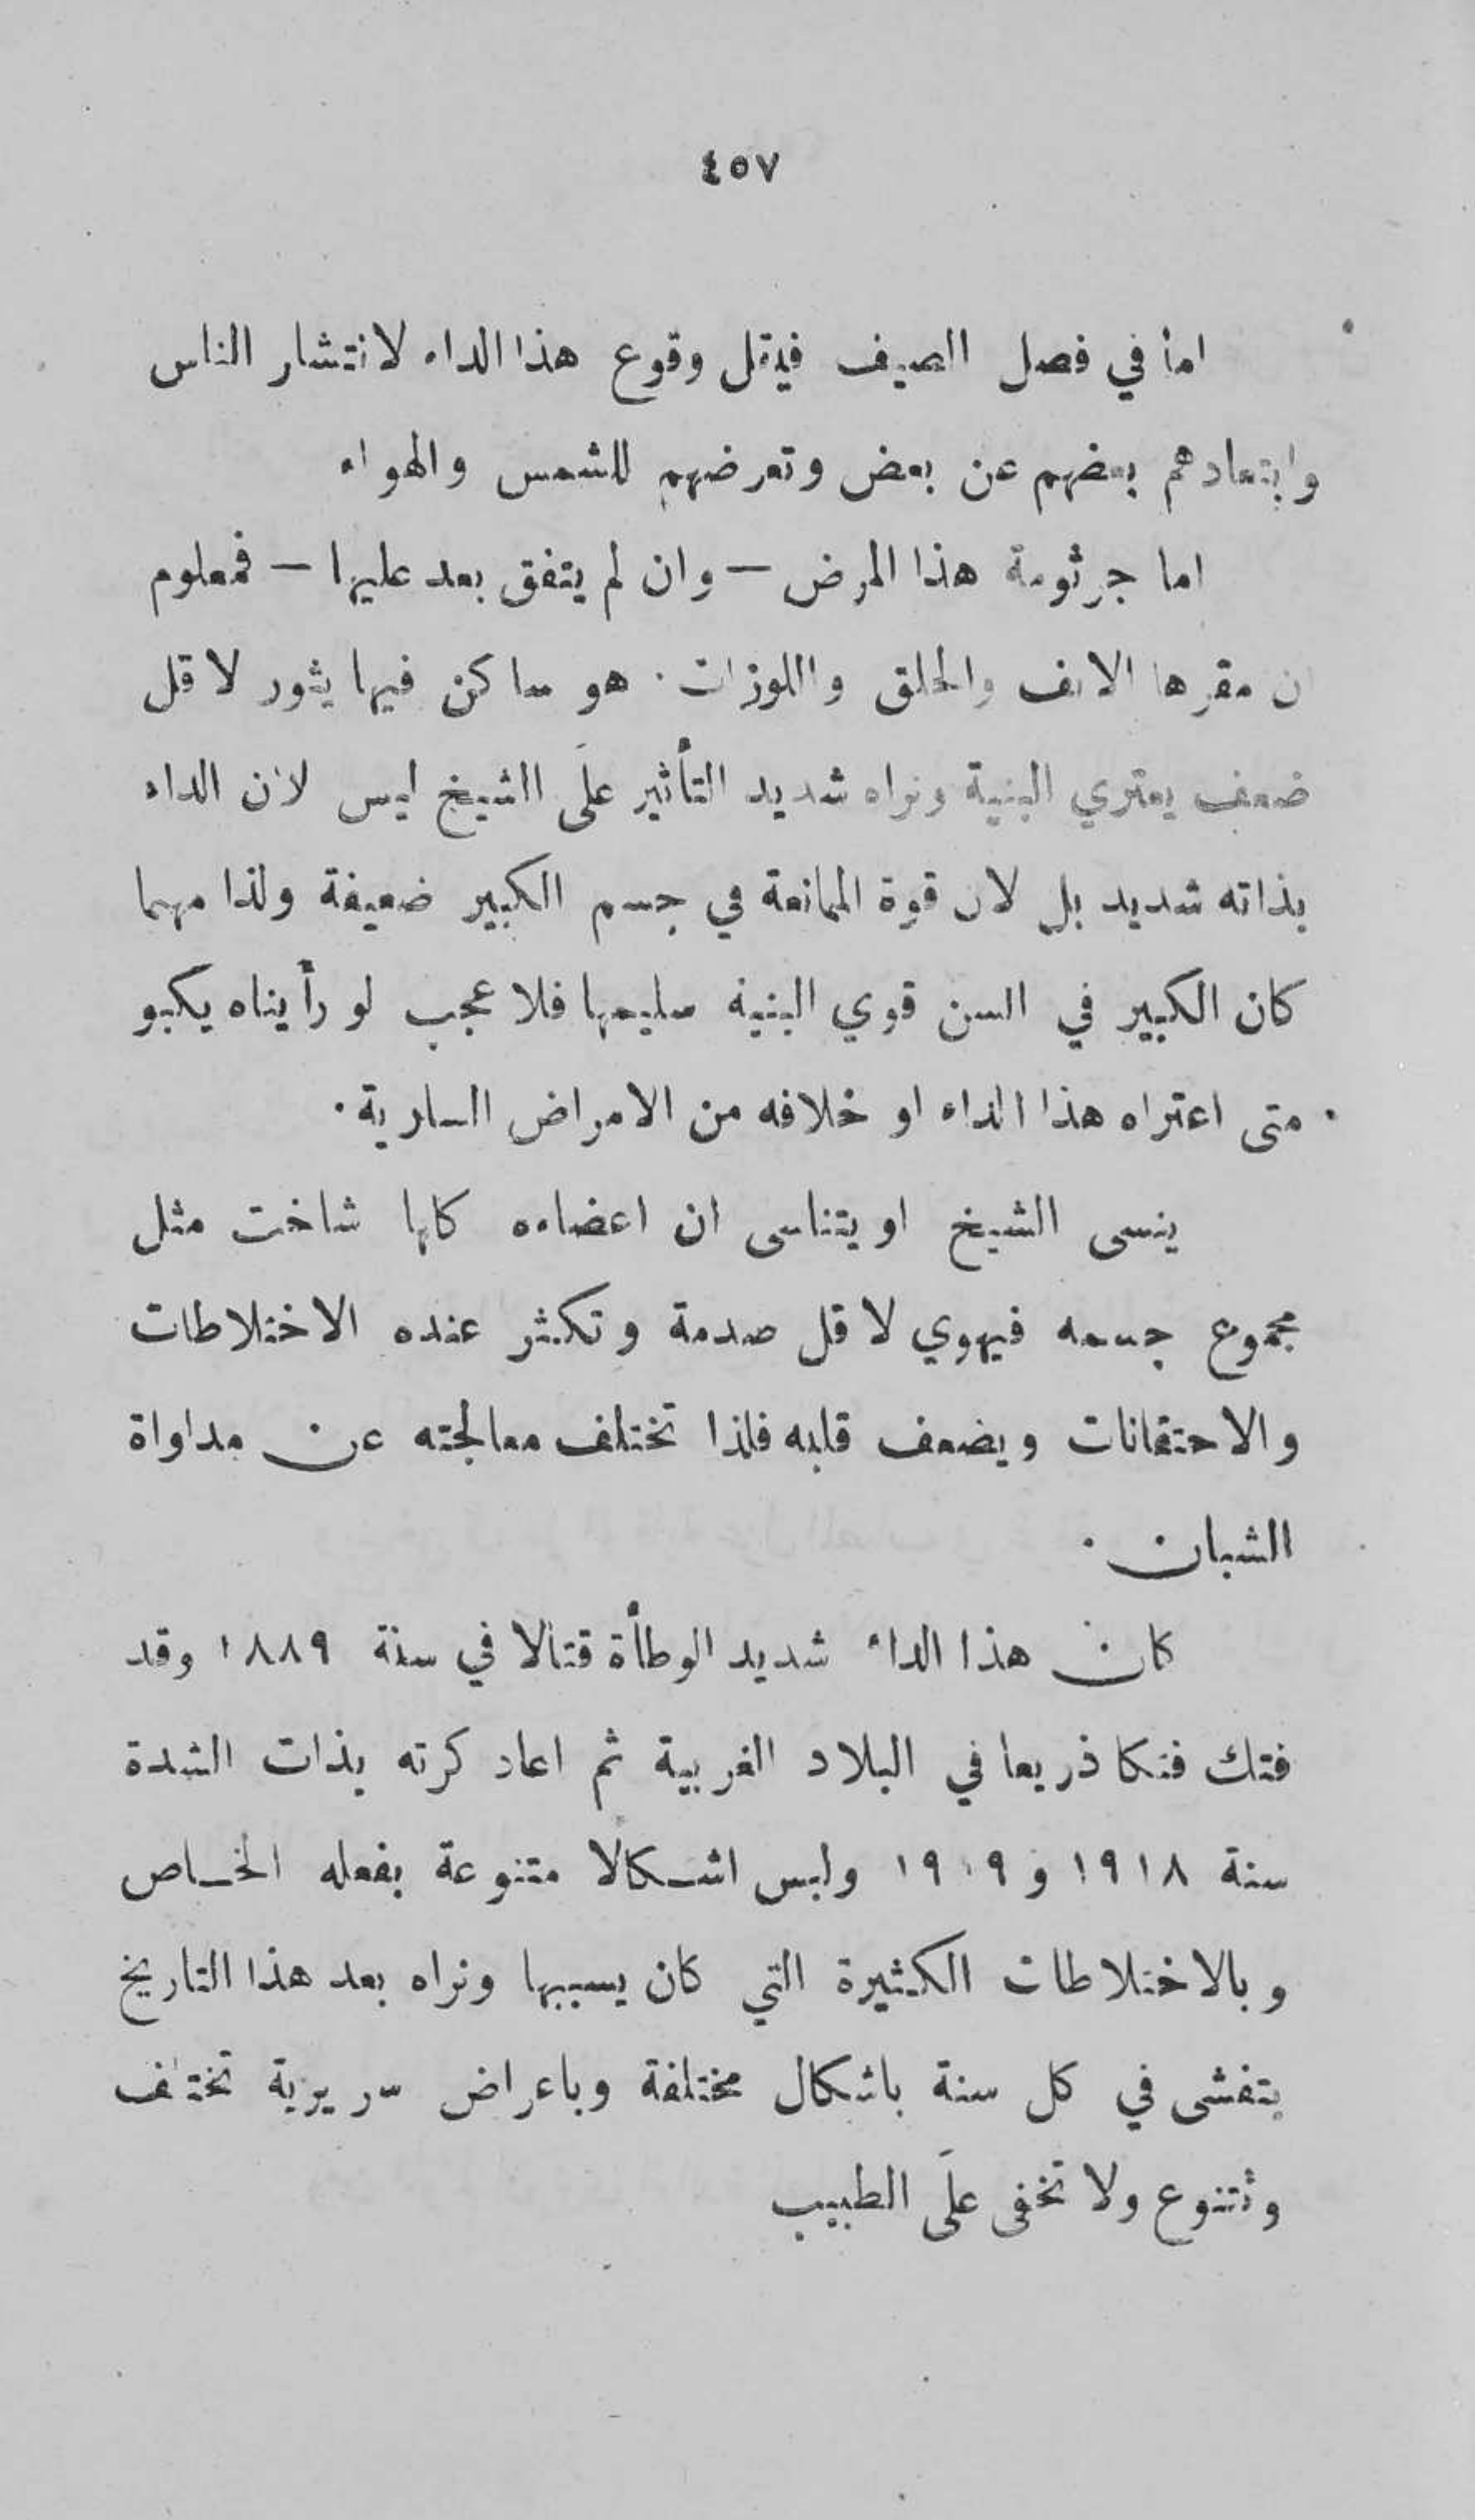 ٤٥٧
اما في فصل الصيف فيقل وقوع هذا الداء لانتشار الناس
وابتعادهم بعضهم عن بعض وتعرضهم للشمس والهواء
اما جرثومة هذا المرض — وان لم يتفق بعد عليها — فمعلوم
ان مقرها الانف والحلق واللوزات · هو ساكن فيها يثور لاقل
ضعف يعتري البنية ونراه شديد التأثير علَى الشيخ ليس لان الداء
بذاته شديد بل لان قوة الممانعة في جسم الكبير ضعيفة ولذا مهما
كان الكبير في السن قوي البنية سليمها فلا عجب لو رأيناه يكبو
متى اعتراه هذا الداء او خلافه من الامراض السارية ·
ينسى الشيخ او يتناسى ان اعضاءه كلها شاخت مثل
مجموع جسمه فيهوي لاقل صدمة وتكثر عنده الاختلاطات
والاحتقانات ويضعف قلبه فلذا تختلف معالجته عن مداواة
الشبان ·
كان هذا الداء شديد الوطأة قتالا في سنة ١٨٨٩ وقد
فتك فتكا ذريعا في البلاد الغربية ثم اعاد كرته بذات الشدة
سنة ١٩١٨ و ١٩١٩ ولبس اشكالا متنوعة بفعله الخاص
وبالاختلاطات الكثيرة التي كان يسببها ونراه بعد هذا التاريخ
يتفشى في كل سنة باشكال مختلفة وباعراض سريرية تختلف
وتتنوع ولا تخفى علَى الطبيب